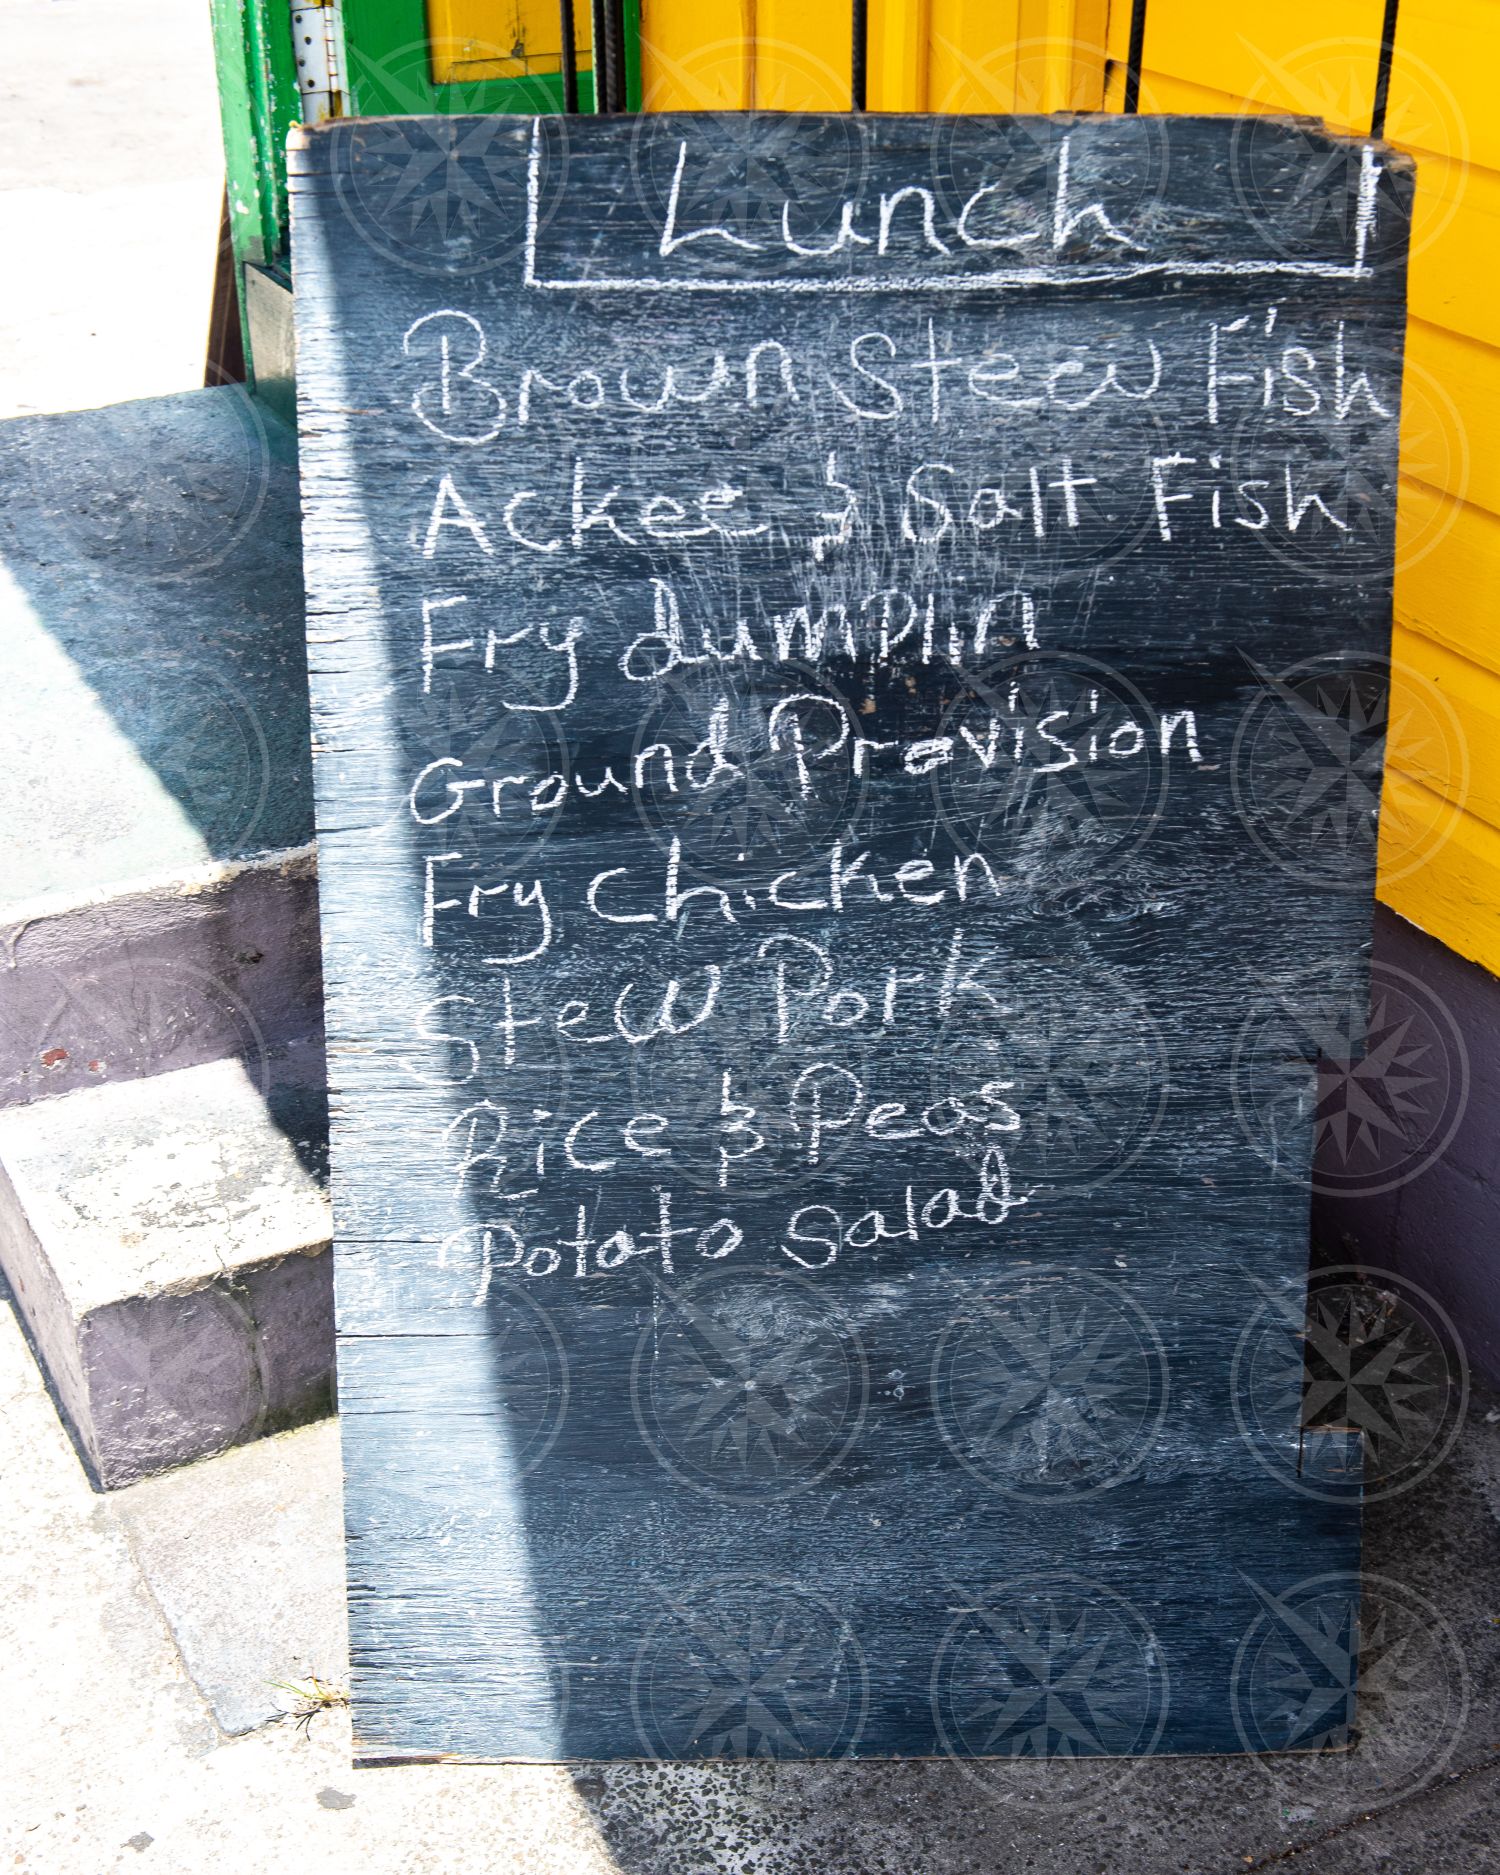 Lunch
Brown Stew Fish
Ackee & Salt Fish
Fry dumplin
Ground Provision
Fry Chicken
Stew Pork
Rice & Peas
Potato Salad